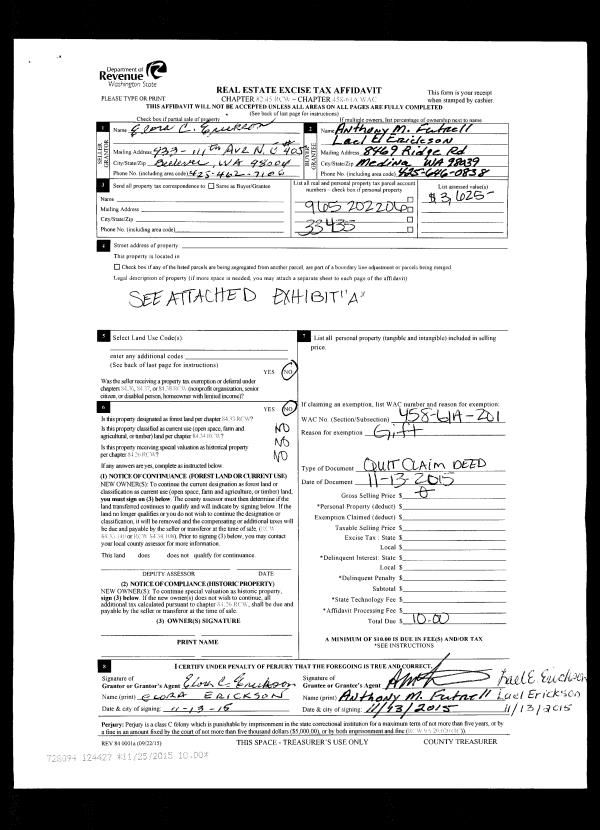 Department of
Revenue
Washington State
REAL ESTATE EXCISE TAX AFFIDAVIT
This form is your receipt
PLEASE TYPE OR PRINT
CHAPTER 82.45 RCW – CHAPTER 458-61A WAC
when stamped by cashier.
THIS AFFIDAVIT WILL NOT BE ACCEPTED UNLESS ALL AREAS ON ALL PAGES ARE FULLY COMPLETED
(See back of last page for instructions)
Check box if partial sale of property
If multiple owners, list percentage of ownership next to name
1 Name Elora C. Erickson
SELLER GRANTOR
Mailing Address 933-111th Ave N.E #405
City/State/Zip Bellevue, WA 98004
Phone No. (including area code) 425-462-7106
2 Name Anthony M. Futrell
Lael E Erickson
BUYER GRANTEE
Mailing Address 8469 Ridge Rd
City/State/Zip Medina WA 98039
Phone No. (including area code) 425-646-0838
3 Send all property tax correspondence to: Same as Buyer/Grantee
Name
Mailing Address
City/State/Zip
Phone No. (including area code)
List all real and personal property tax parcel account
numbers – check box if personal property
965 202206
33435
List assessed value(s)
$3,625-
4 Street address of property:
This property is located in
Check box if any of the listed parcels are being segregated from another parcel, are part of a boundary line adjustment or parcels being merged.
Legal description of property (if more space is needed, you may attach a separate sheet to each page of the affidavit)
SEE ATTACHED EXHIBIT "A"
5 Select Land Use Code(s):
enter any additional codes
(See back of last page for instructions)
YES NO
Was the seller receiving a property tax exemption or deferral under
chapters 84.36, 84.37, or 84.38 RCW (nonprofit organization, senior
citizen, or disabled person, homeowner with limited income)?
6 YES NO
Is this property designated as forest land per chapter 84.33 RCW?
NO
Is this property classified as current use (open space, farm and
agricultural, or timber) land per chapter 84.34 RCW?
NO
Is this property receiving special valuation as historical property
per chapter 84.26 RCW?
NO
If any answers are yes, complete as instructed below.
(1) NOTICE OF CONTINUANCE (FOREST LAND OR CURRENT USE)
NEW OWNER(S): To continue the current designation as forest land or
classification as current use (open space, farm and agriculture, or timber) land,
you must sign on (3) below. The county assessor must then determine if the
land transferred continues to qualify and will indicate by signing below. If the
land no longer qualifies or you do not wish to continue the designation or
classification, it will be removed and the compensating or additional taxes will
be due and payable by the seller or transferor at the time of sale. (RCW
84.33.140 or RCW 84.34.108). Prior to signing (3) below, you may contact
your local county assessor for more information.
This land does does not qualify for continuance.
DEPUTY ASSESSOR DATE
(2) NOTICE OF COMPLIANCE (HISTORIC PROPERTY)
NEW OWNER(S): To continue special valuation as historic property,
sign (3) below. If the new owner(s) does not wish to continue, all
additional tax calculated pursuant to chapter 84.26 RCW, shall be due and
payable by the seller or transferor at the time of sale.
(3) OWNER(S) SIGNATURE
PRINT NAME
7 List all personal property (tangible and intangible) included in selling
price.
If claiming an exemption, list WAC number and reason for exemption:
WAC No. (Section/Subsection) 458-61A-201
Reason for exemption Gift
Type of Document QUIT CLAIM DEED
Date of Document 11-13-2015
Gross Selling Price $ 0
*Personal Property (deduct) $
Exemption Claimed (deduct) $
Taxable Selling Price $
Excise Tax : State $
Local $
*Delinquent Interest: State $
Local $
*Delinquent Penalty $
Subtotal $
*State Technology Fee $
*Affidavit Processing Fee $
Total Due $ 10.00
A MINIMUM OF $10.00 IS DUE IN FEE(S) AND/OR TAX
*SEE INSTRUCTIONS
8 I CERTIFY UNDER PENALTY OF PERJURY THAT THE FOREGOING IS TRUE AND CORRECT.
Signature of
Grantor or Grantor's Agent Elora C. Erickson
Name (print) ELORA ERICKSON
Date & city of signing: 11-13-15
Signature of
Grantee or Grantee's Agent Lael E. Erickson
Name (print) Anthony M. Futrell Lael Erickson
Date & city of signing: 11/13/2015 11/13/2015
Perjury: Perjury is a class C felony which is punishable by imprisonment in the state correctional institution for a maximum term of not more than five years, or by
a fine in an amount fixed by the court of not more than five thousand dollars ($5,000.00), or by both imprisonment and fine (RCW 9A.20.020 (1C)).
REV 84 0001a (09/22/15)
THIS SPACE - TREASURER'S USE ONLY
COUNTY TREASURER
728094 124427 *11/25/2015 10.00*